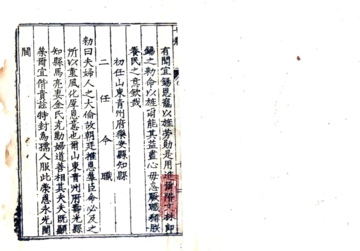 有聞宜錫恩寵以旌勞勛是用進爾階文林郎
錫之勅命以旌爾能其益盡心毋怠厥職稱朕
養民之意欽哉
初任山東青州府樂安縣知縣
二任今職
勅曰夫婦人之大倫故朝廷推恩羣臣命必及之
所以重風化厚恩意也爾山東青州府壽光縣
知縣馬亮妻金氏克勤婦道善相其夫夫既顯
榮爾宜偕貴茲特封為孺人服此榮恩永光閨
閫